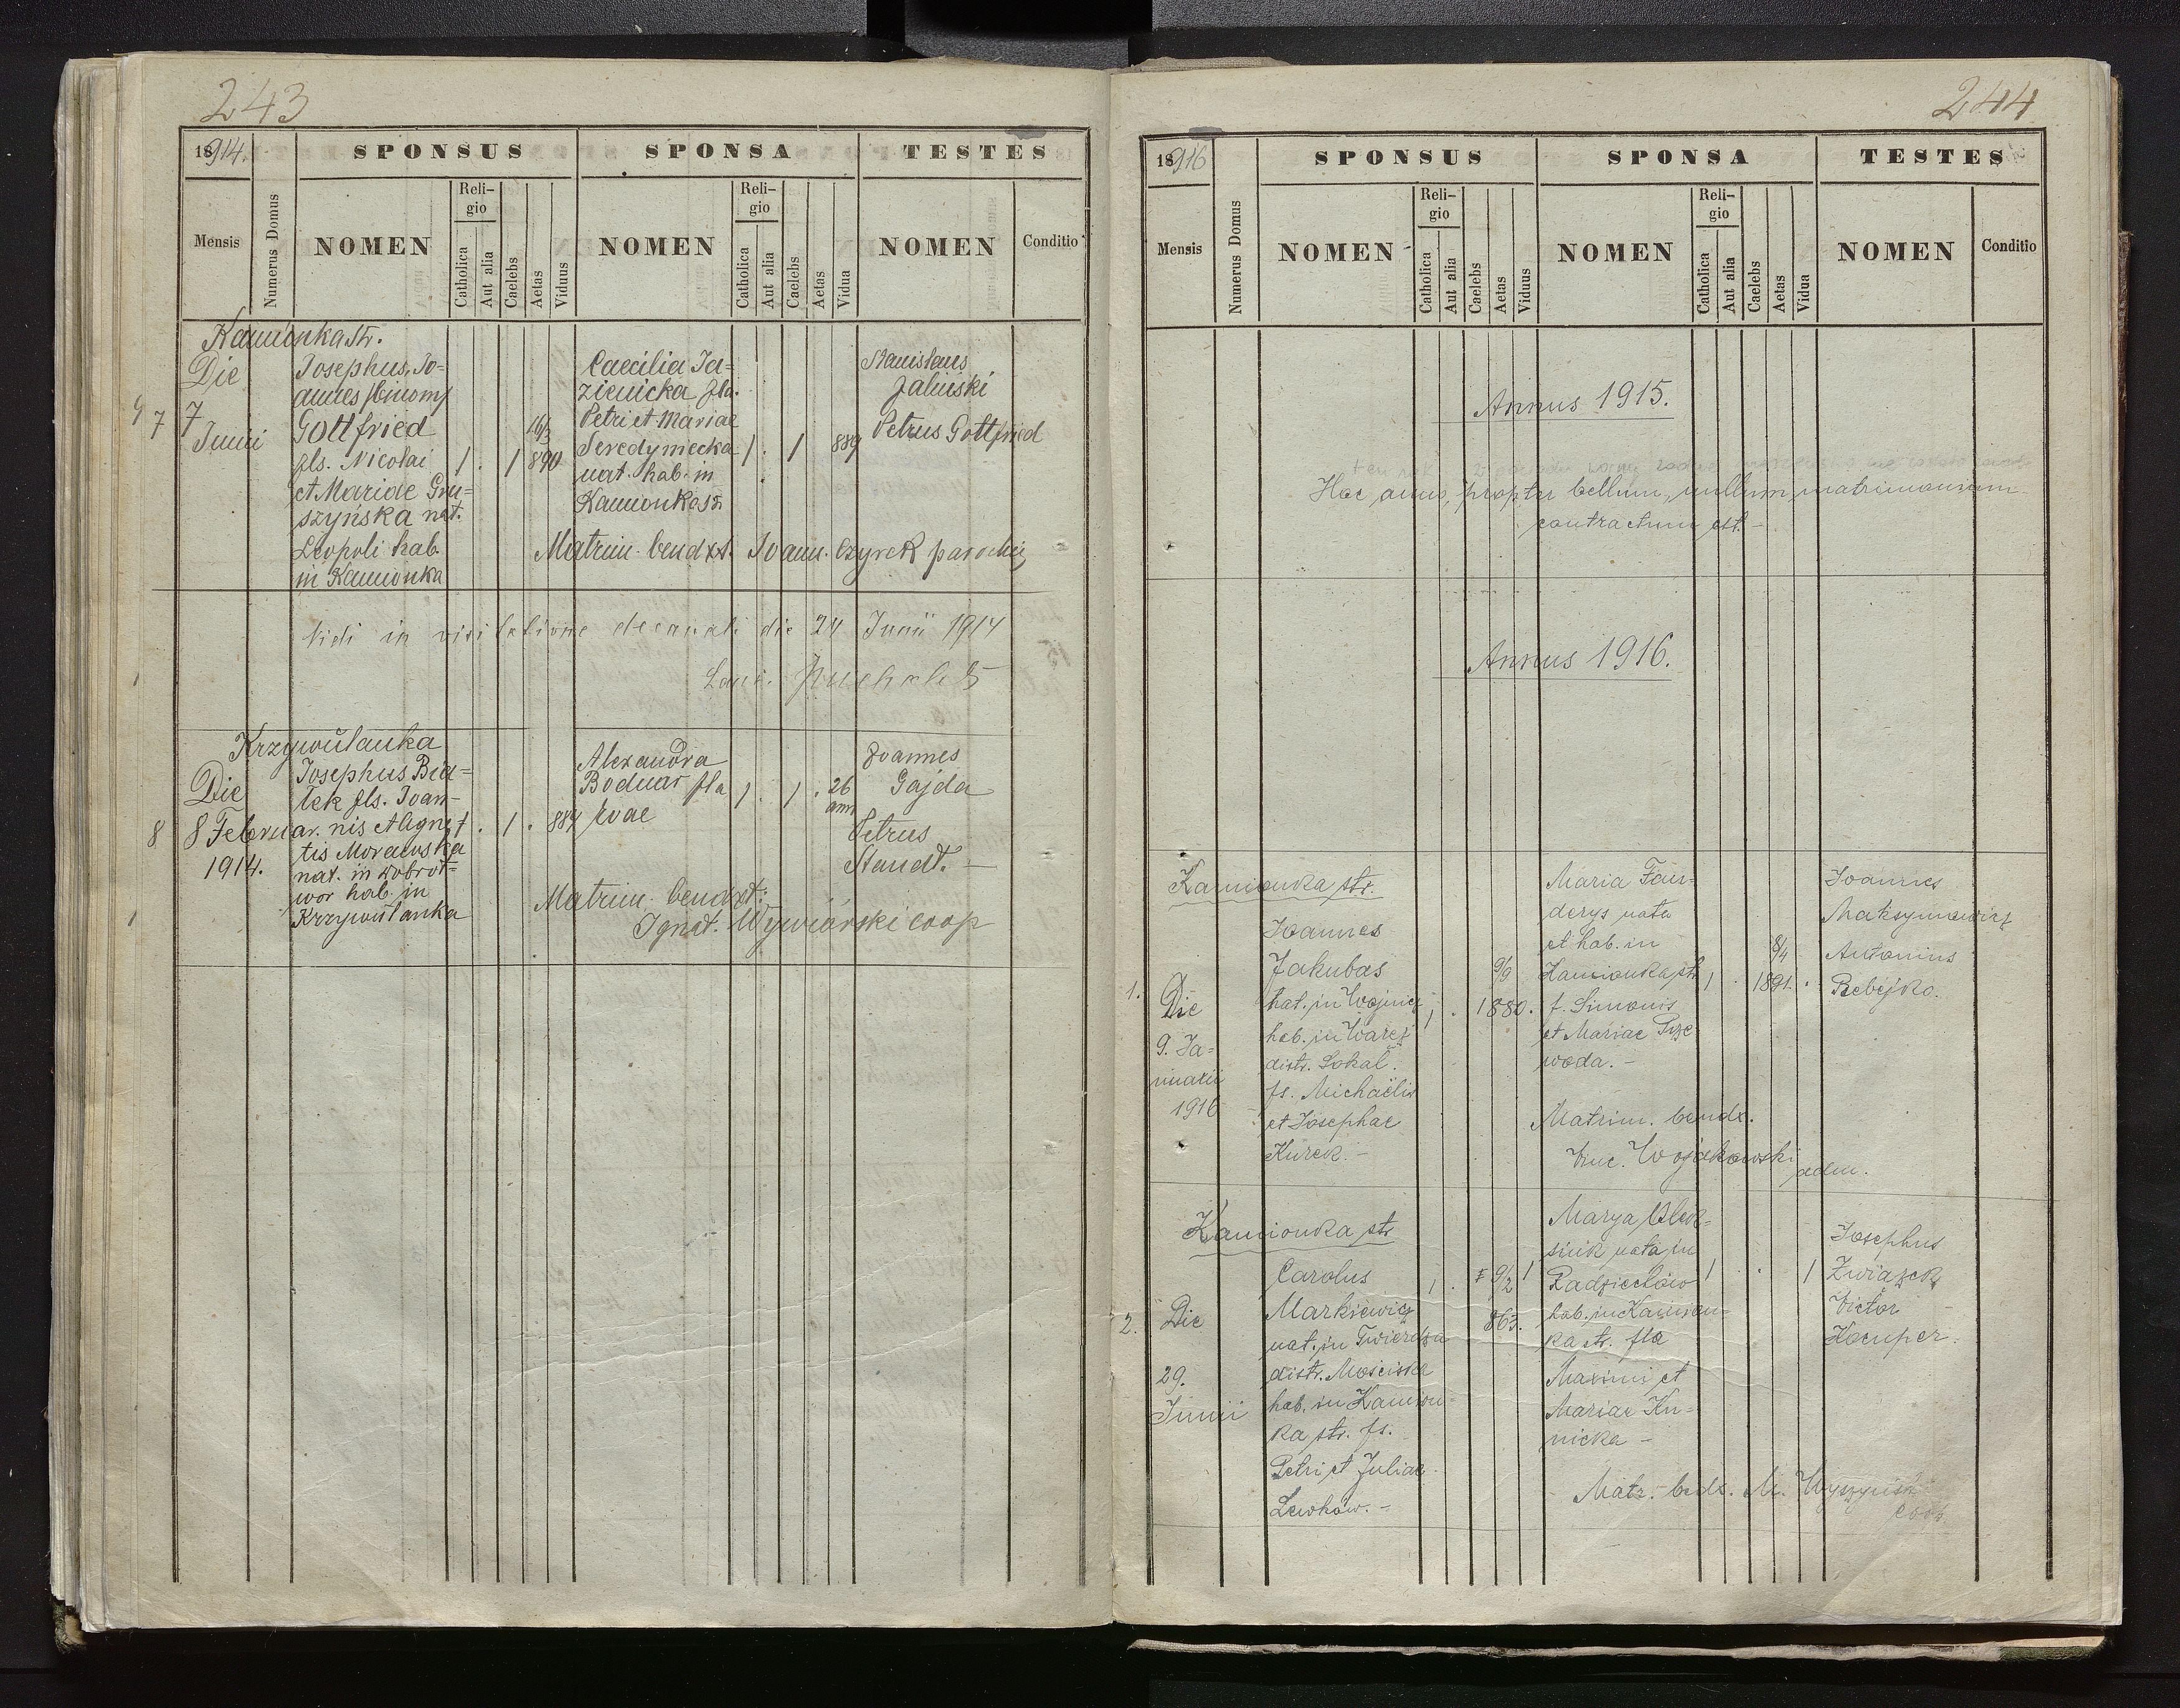 243
1914.
SPONSUS SPONSA TESTES
Mensis
Numerus Domus
NOMEN
Religio
Catholica
Aut alia
Caelebs
Aetas
Viduus
NOMEN
Religio
Catholica
Aut alia
Caelebs
Aetas
Vidua
NOMEN
Conditio
Kamionka str.
7
Die
7
Junii
Josephus, Jo=
annes /binom/
Gottfried
fls. Nicolai
et Mariae Gru=
szyńska nat.
Leopoli hab.
in Kamionka
1 . 1 16/3 890
Caecilia Ja=
zienicka fla.
Petri et Mariae
Seredyniecka
nat. hab. in
Kamionka str
1 . 1 889
Stanislaus
Jaliński
Petrus Gottfried
Matrim. bendxt. Joann. Czyrek parochus
Vidi in visitatione decanali die 24 Junii 1914
Krzywulanka
8
Die
8 Februar.
1914.
Josephus Bia=
łek fls. Joan=
nis et Agne=
tis Morawska
nat. in Dobrot=
wor hab. in
Krzywulanka
1 . 1 . 884
Alexandra
Bodnar fla
Evae
1 . 1 . 26
ann
Joannes
Gajda
Petrus
Staudt. —
Matrim. bendxt:
Ignat. Wywiórski coop
244
1916
SPONSUS SPONSA TESTES
Mensis
Numerus Domus
NOMEN
Religio
Catholica
Aut alia
Caelebs
Aetas
Viduus
NOMEN
Religio
Catholica
Aut alia
Caelebs
Aetas
Vidua
NOMEN
Conditio
Annus 1915.
ten rok z powodu wojny żadne
Hoc anno, propter bellum, nullum matrimonium
contractum est. —
Annus 1916.
Kamionka str.
1.
Die
9. Ja=
nuarii
1916
Joannes
Jakubas
nat. in Wojnicz
hab. in Waręż
distr. Sokal.
fs. Michaëlis
et Josephae
Kurek. —
1 . 9/9 1880.
Maria Fan=
derys nata
et hab. in
Kamionka str.
f. Simonis
et Mariae Prze
woda. —
1 . 8/4 1891. .
Joannes
Maksymowicz
Antonius
Bebejko.
Matrim. bendx.
Vinc. Wojakowski
adm.
Kamionka str
2.
Die
29.
Junii
Carolus
Markiewicz
nat. in Twierdza
distr. Mościska
hab. in Kamion=
ka str. fs.
Petri et Juliae
Lewków. —
1 . 9/2 1
863.
Marya Olek=
siuk nata in
Radziechów
hab. in Kamion=
ka str. fla
Maximi et
Mariae Ku=
nicka —
1 . 1
Josephus
Związek
Victor
Kamper.
Matr. bndx. M. Wyszyński
coop.